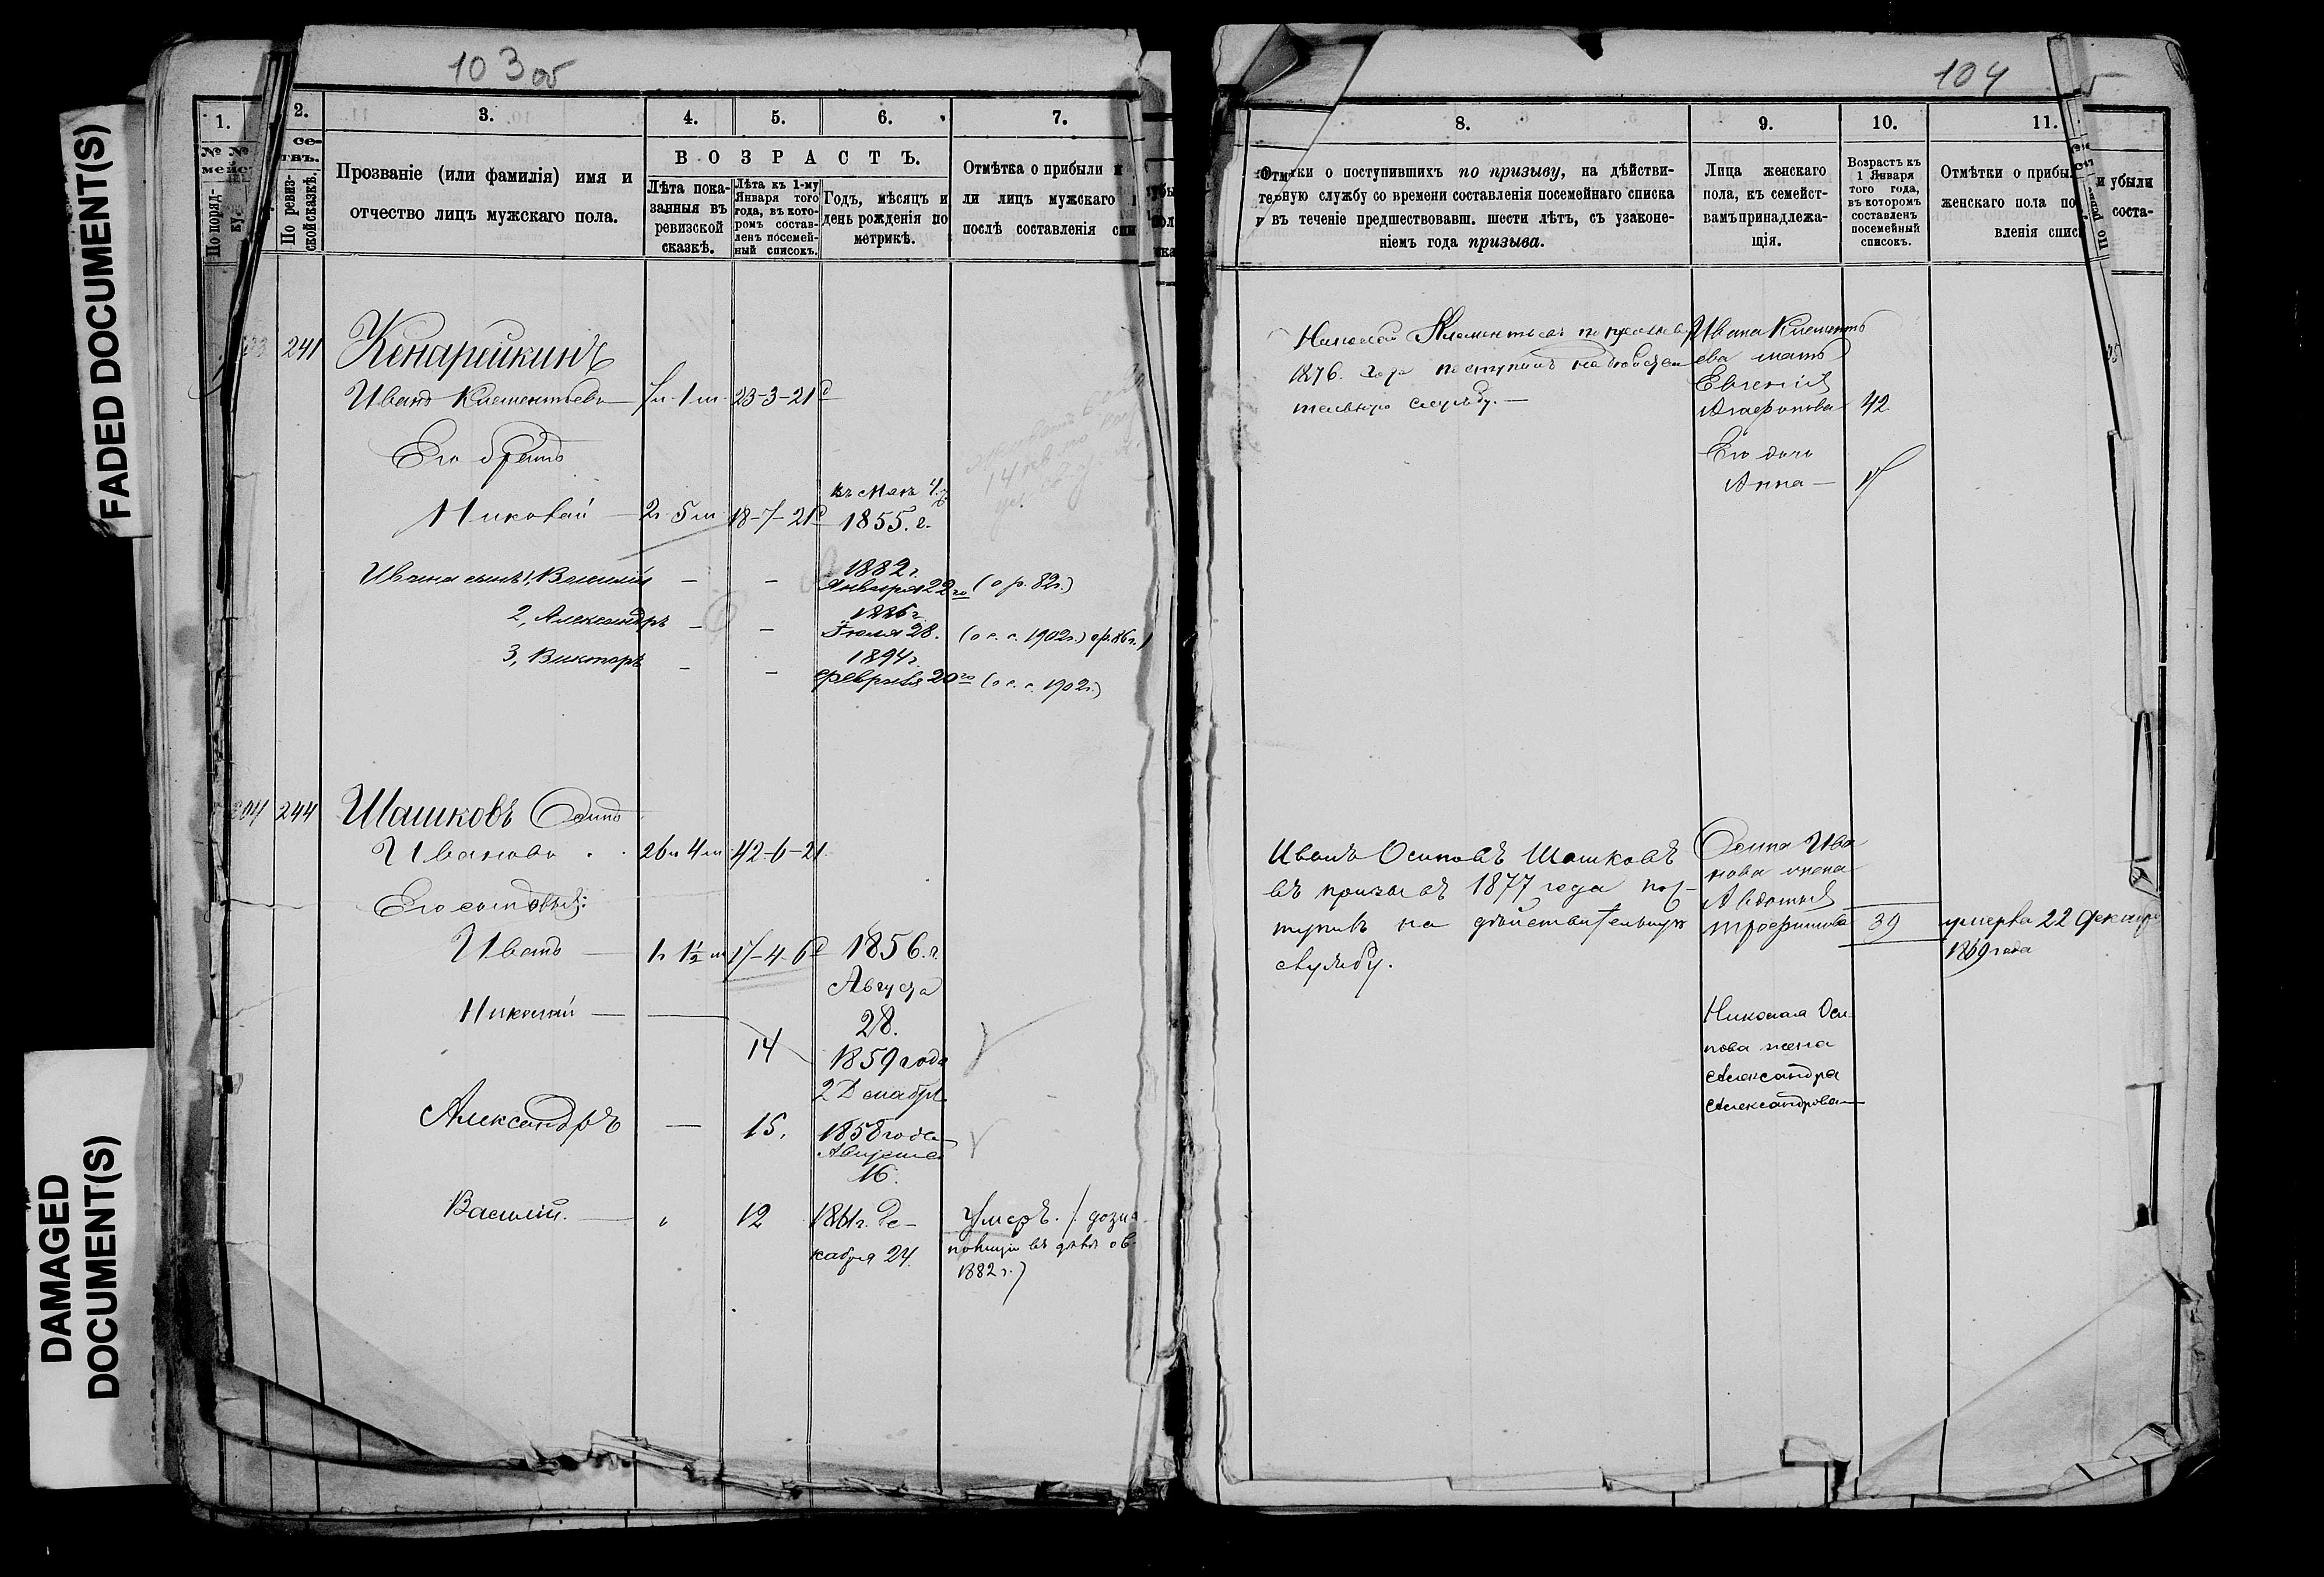 FADED DOCUMENT(S)
DAMAGED
DOCUMENT(S)
103 об
1.
2.
3.
4.
5.
6.
7.
№ №
По поряд-
ку.
се-
твъ.
По ревиз-
ской сказкѣ.
Прозваніе (или фамилія) имя и
отчество лицъ мужскаго пола.
ВОЗРАСТЪ.
Лѣта пока-
занныя въ
ревизской
сказкѣ.
Лѣта къ 1-му
Января того
года, въ кото-
ромъ состав-
ленъ посемей-
ный списокъ.
Годъ, мѣсяцъ и
день рожденія по
метрикѣ.
Отмѣтка о прибыли и
ли лицъ мужскаго
послѣ составленія спи
241
Кенарейкинъ
Иванъ Клементьевъ 7 л. 1 м. 23-3-21 д
Его братъ
Николай 2 г. 5 м. 18-7-21 д
1855. г.
Ивана сынъ 1, Василій — —
1882 г.
Января 22го (о р. 82 г.)
2, Александръ — —
1886 г.
Іюля 28. (о с. с. 1902 г.) о р. 86 г.)
3, Викторъ — —
1894 г.
Февраля 20го (о с. с. 1902 г.)
204 244 Шашковъ Осипъ
Ивановъ 26 л. 4 м. 42-6-21.
Его сыновья:
Иванъ — 1 г. 1½ м. 17-4-6 д 1856. г.
Августа
28.
Николай — — 14
1859 года
2 Декабря
Александръ — 15.
1858 года
Августа
16.
Василій. — 12 1861 г. Де-
кабря 24.
Умеръ. (дозна
1882 г.)
104
8.
9.
10.
11.
Отмѣтки о поступившихъ по призыву, на дѣйстви-
тельную службу со времени составленія посемейнаго списка
и въ теченіе предшествовавш. шести лѣтъ, съ узаконе-
ніемъ года призыва.
Лица женскаго
пола, къ семейст-
вамъ принадлежа-
щія.
Возрастъ къ
1 Января
того года,
въ которомъ
составленъ
посемейный
списокъ.
Отмѣтки о прибы
женскаго пола по
вленія списк
и убыли
соста-
Николай Клементьевъ по призыву
1876. года поступилъ на дѣйстви
тельную службу. —
Ивана Клементь
ева мать
Евгенія
Агафонова 42
Его дочь
Анна —
Иванъ Осиповъ Шашковъ
въ призывъ 1877 года пос-
тупилъ на дѣйствительную
службу.
Осипа Ива
нова жена
Авдотья
Трофимова 39 умерла 22 Декабр
1869 года
Николая Оси
пова жена
Александра
Александрова —